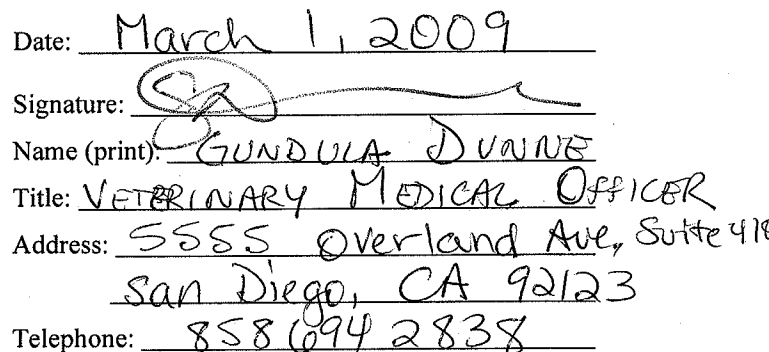 Date: March 1, 2009
Signature:
Name (print): GUNDULA DUNNE
Title: VETERINARY MEDICAL OFFICER
Address: 5555 Overland Ave, Suite 418
San Diego, CA 92123
Telephone: 858 694 2838